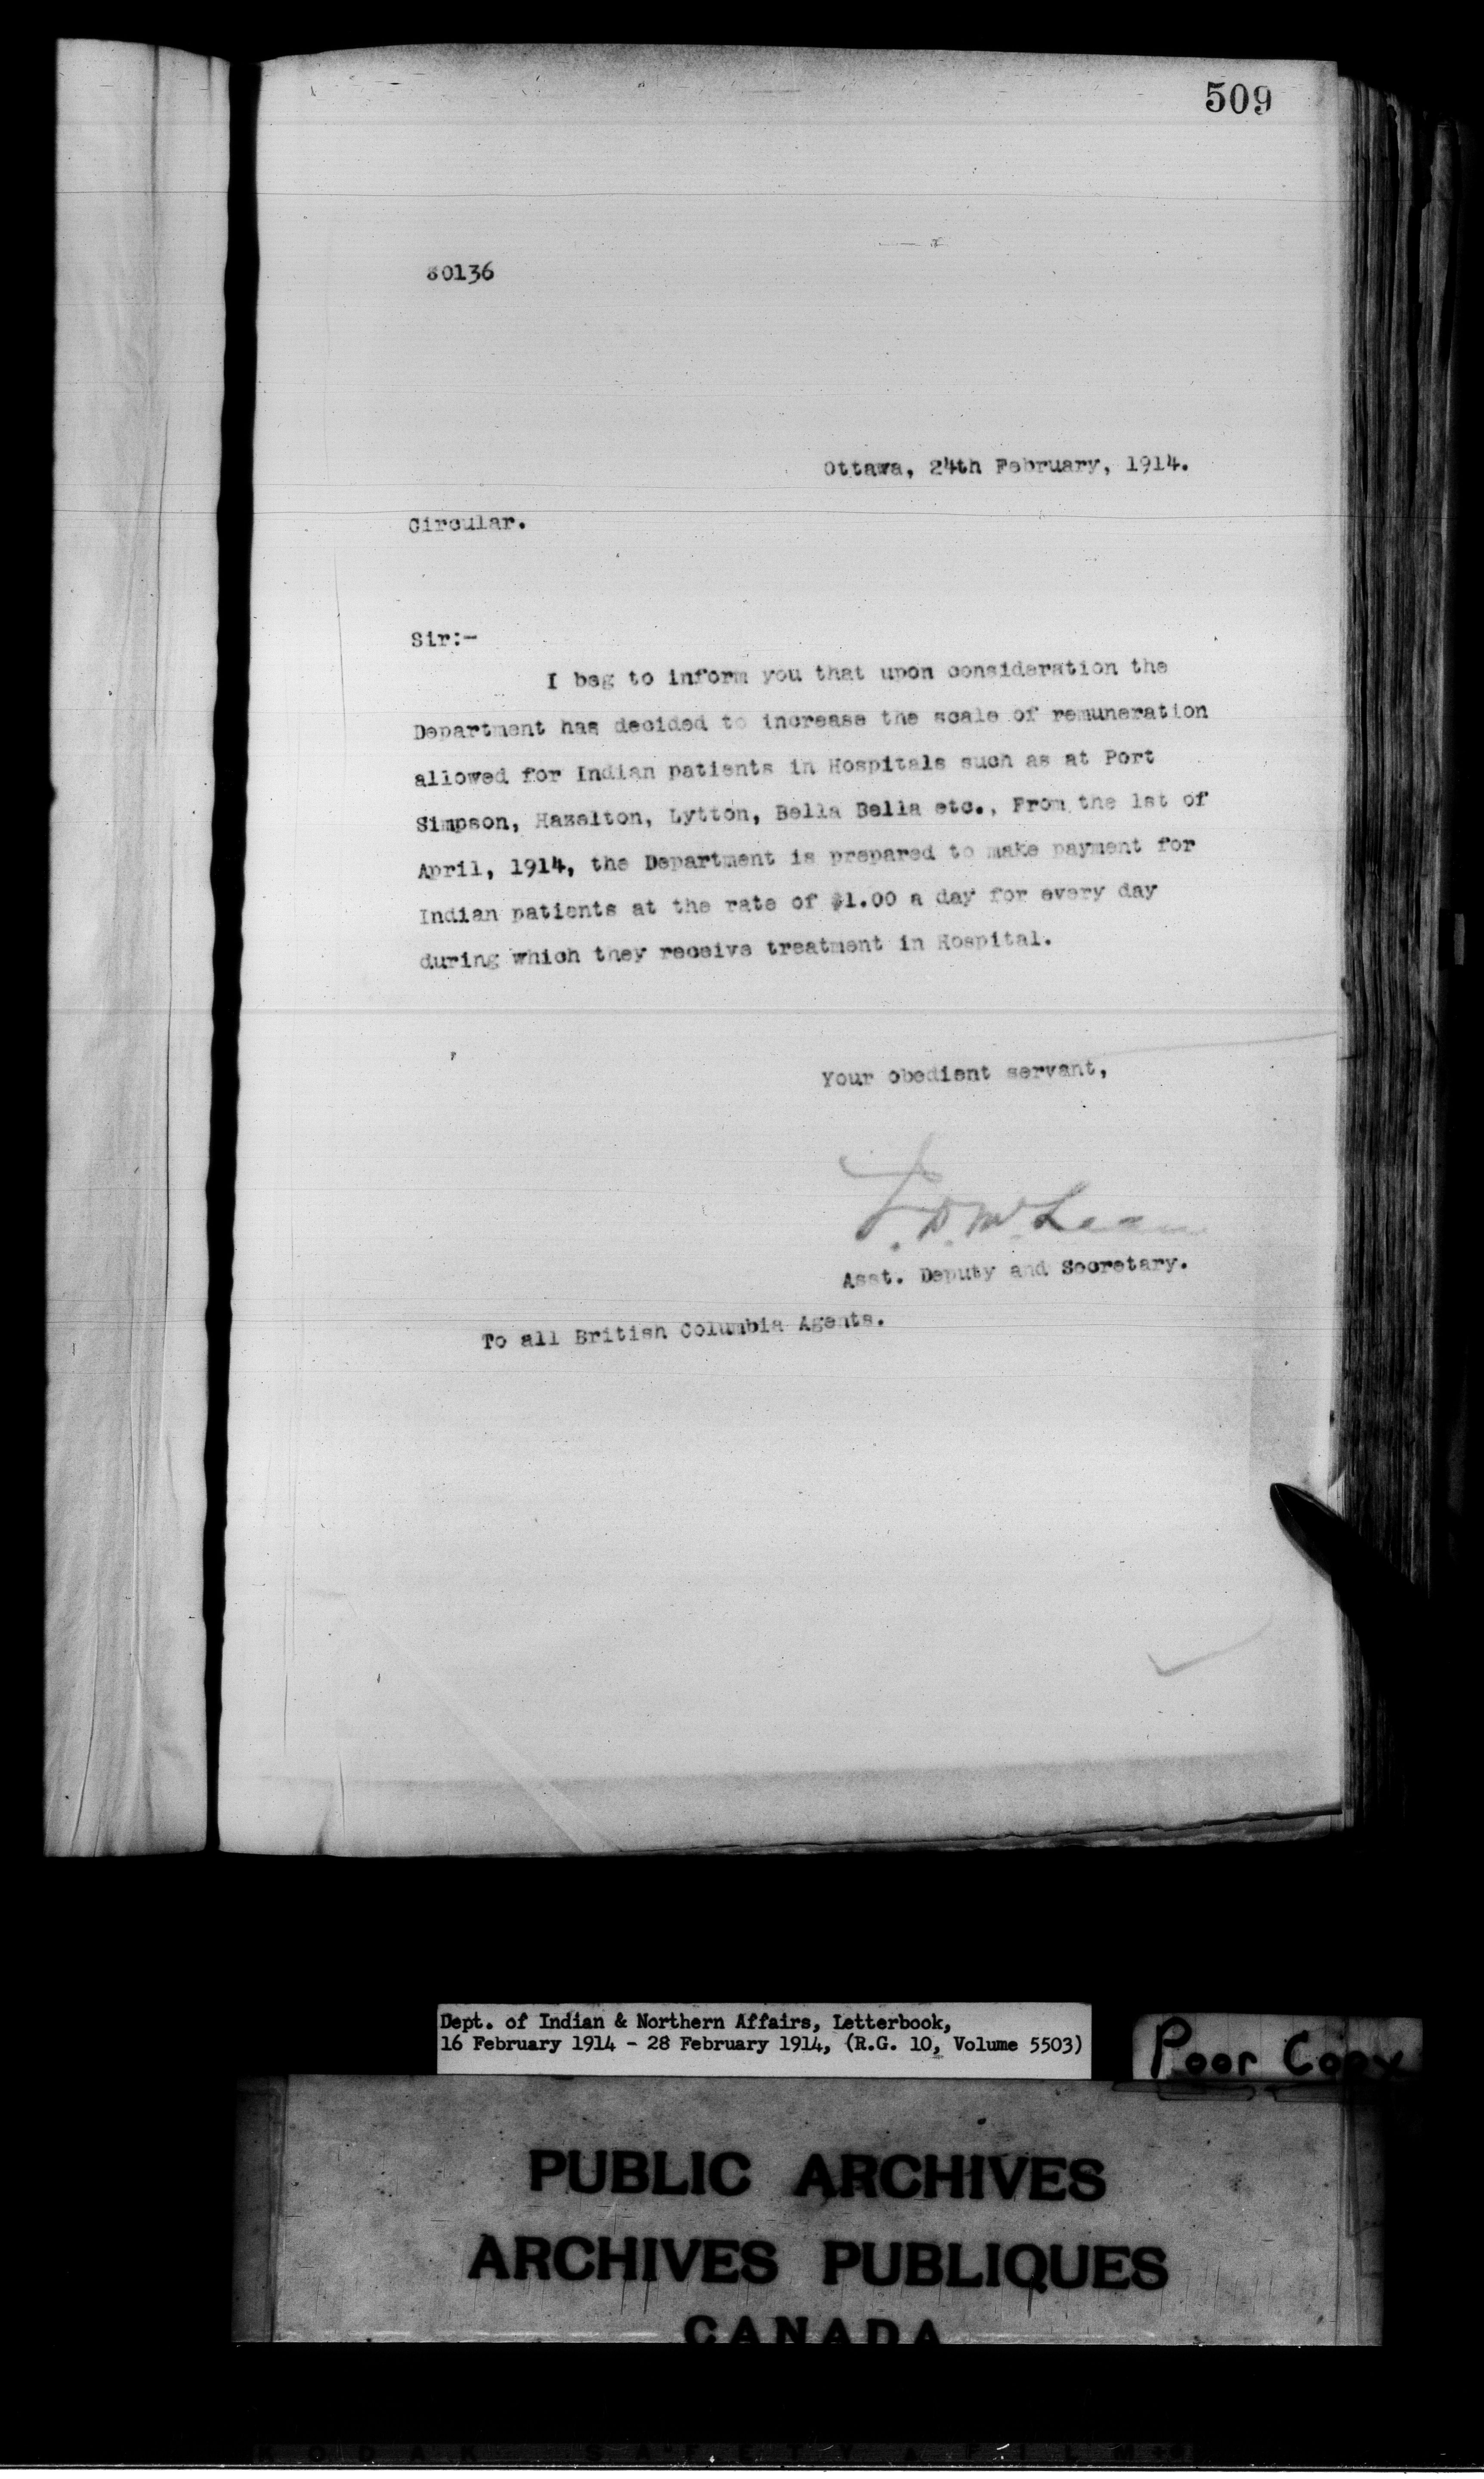 509
80136
Ottawa, 24th February, 1914.
Circular.
Sir:-
I beg to inform you that upon consideration the
Department has decided to increase the scale of remuneration
allowed for Indian patients in Hospitals such as at Port
Simpson, Hazelton, Lytton, Bella Bella etc., From the 1st of
April, 1914, the Department is prepared to make payment for
Indian patients at the rate of $1.00 a day for every day
during which they receive treatment in Hospital.
Your obedient servant,
J. D. McLean
Asst. Deputy and Secretary.
To all British Columbia Agents.
Dept. of Indian & Northern Affairs, Letterbook,
16 February 1914 - 28 February 1914, (R.G. 10, Volume 5503)
Poor Copy
PUBLIC ARCHIVES
ARCHIVES PUBLIQUES
CANADA
KODAK SAFETY FILM